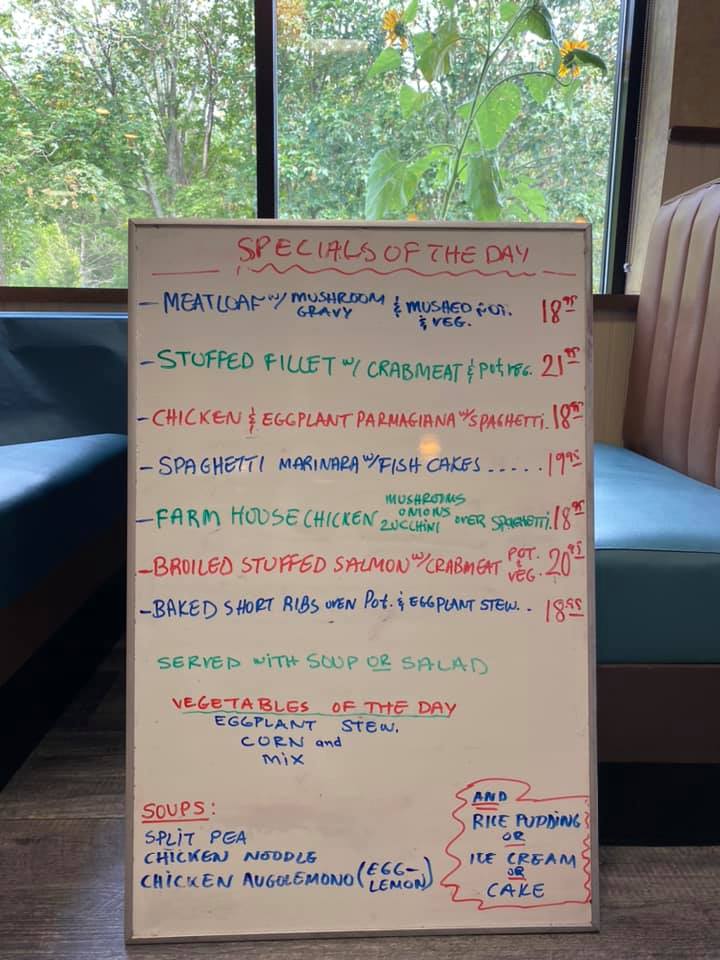 SPECIALS OF THE DAY
- MEATLOAF w/ MUSHROOM GRAVY & MUSHED POT. & VEG. 18.95
- STUFFED FILLET w/ CRABMEAT & POT, VEG. 21.95
- CHICKEN & EGGPLANT PARMAGIANA w/ SPAGHETTI. 18.95
- SPAGHETTI MARINARA w/ FISH CAKES ..... 19.95
- FARM HOUSE CHICKEN MUSHROOMS ONIONS ZUCCHINI OVER SPAGHETTI. 18.95
- BROILED STUFFED SALMON w/ CRABMEAT POT. & VEG. 20.95
- BAKED SHORT RIBS OVEN POT. & EGGPLANT STEW. . 18.95
SERVED WITH SOUP OR SALAD
VEGETABLES OF THE DAY
EGGPLANT STEW.
CORN and
MIX
SOUPS:
SPLIT PEA
CHICKEN NOODLE
CHICKEN AUGOLEMONO (EGG-LEMON)
AND
RICE PUDDING
OR
ICE CREAM
OR
CAKE